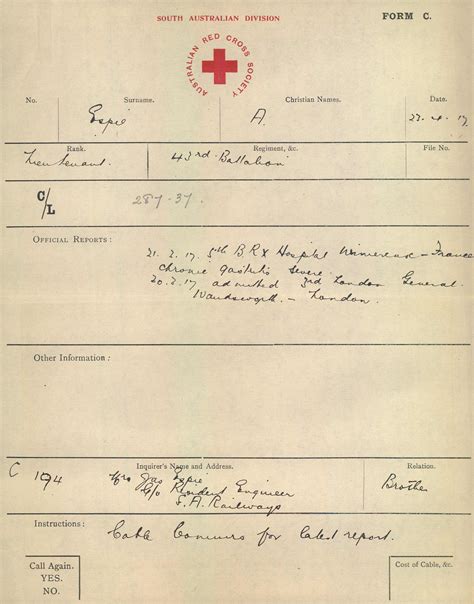 SOUTH AUSTRALIAN DIVISION
FORM C.
AUSTRALIAN RED CROSS SOCIETY
No. Surname. Christian Names. Date.
Espie A. 27.4.17
Rank. Regiment, &c. File No.
Lieutenant 43rd Battalion
C/L 287.37.
OFFICIAL REPORTS:
21.2.17. 5th B R X Hospital Wimereux – France
chronic gastritis severe.
20.2.17 admitted 3rd London General
Wandsworth. – London.
Other Information:
Inquirer's Name and Address. Relation.
C 194 Jas Espie Brother
c/o Resident Engineer
S.A. Railways
Instructions: Cable Comurs for latest report.
Call Again.
YES.
NO.
Cost of Cable, &c.